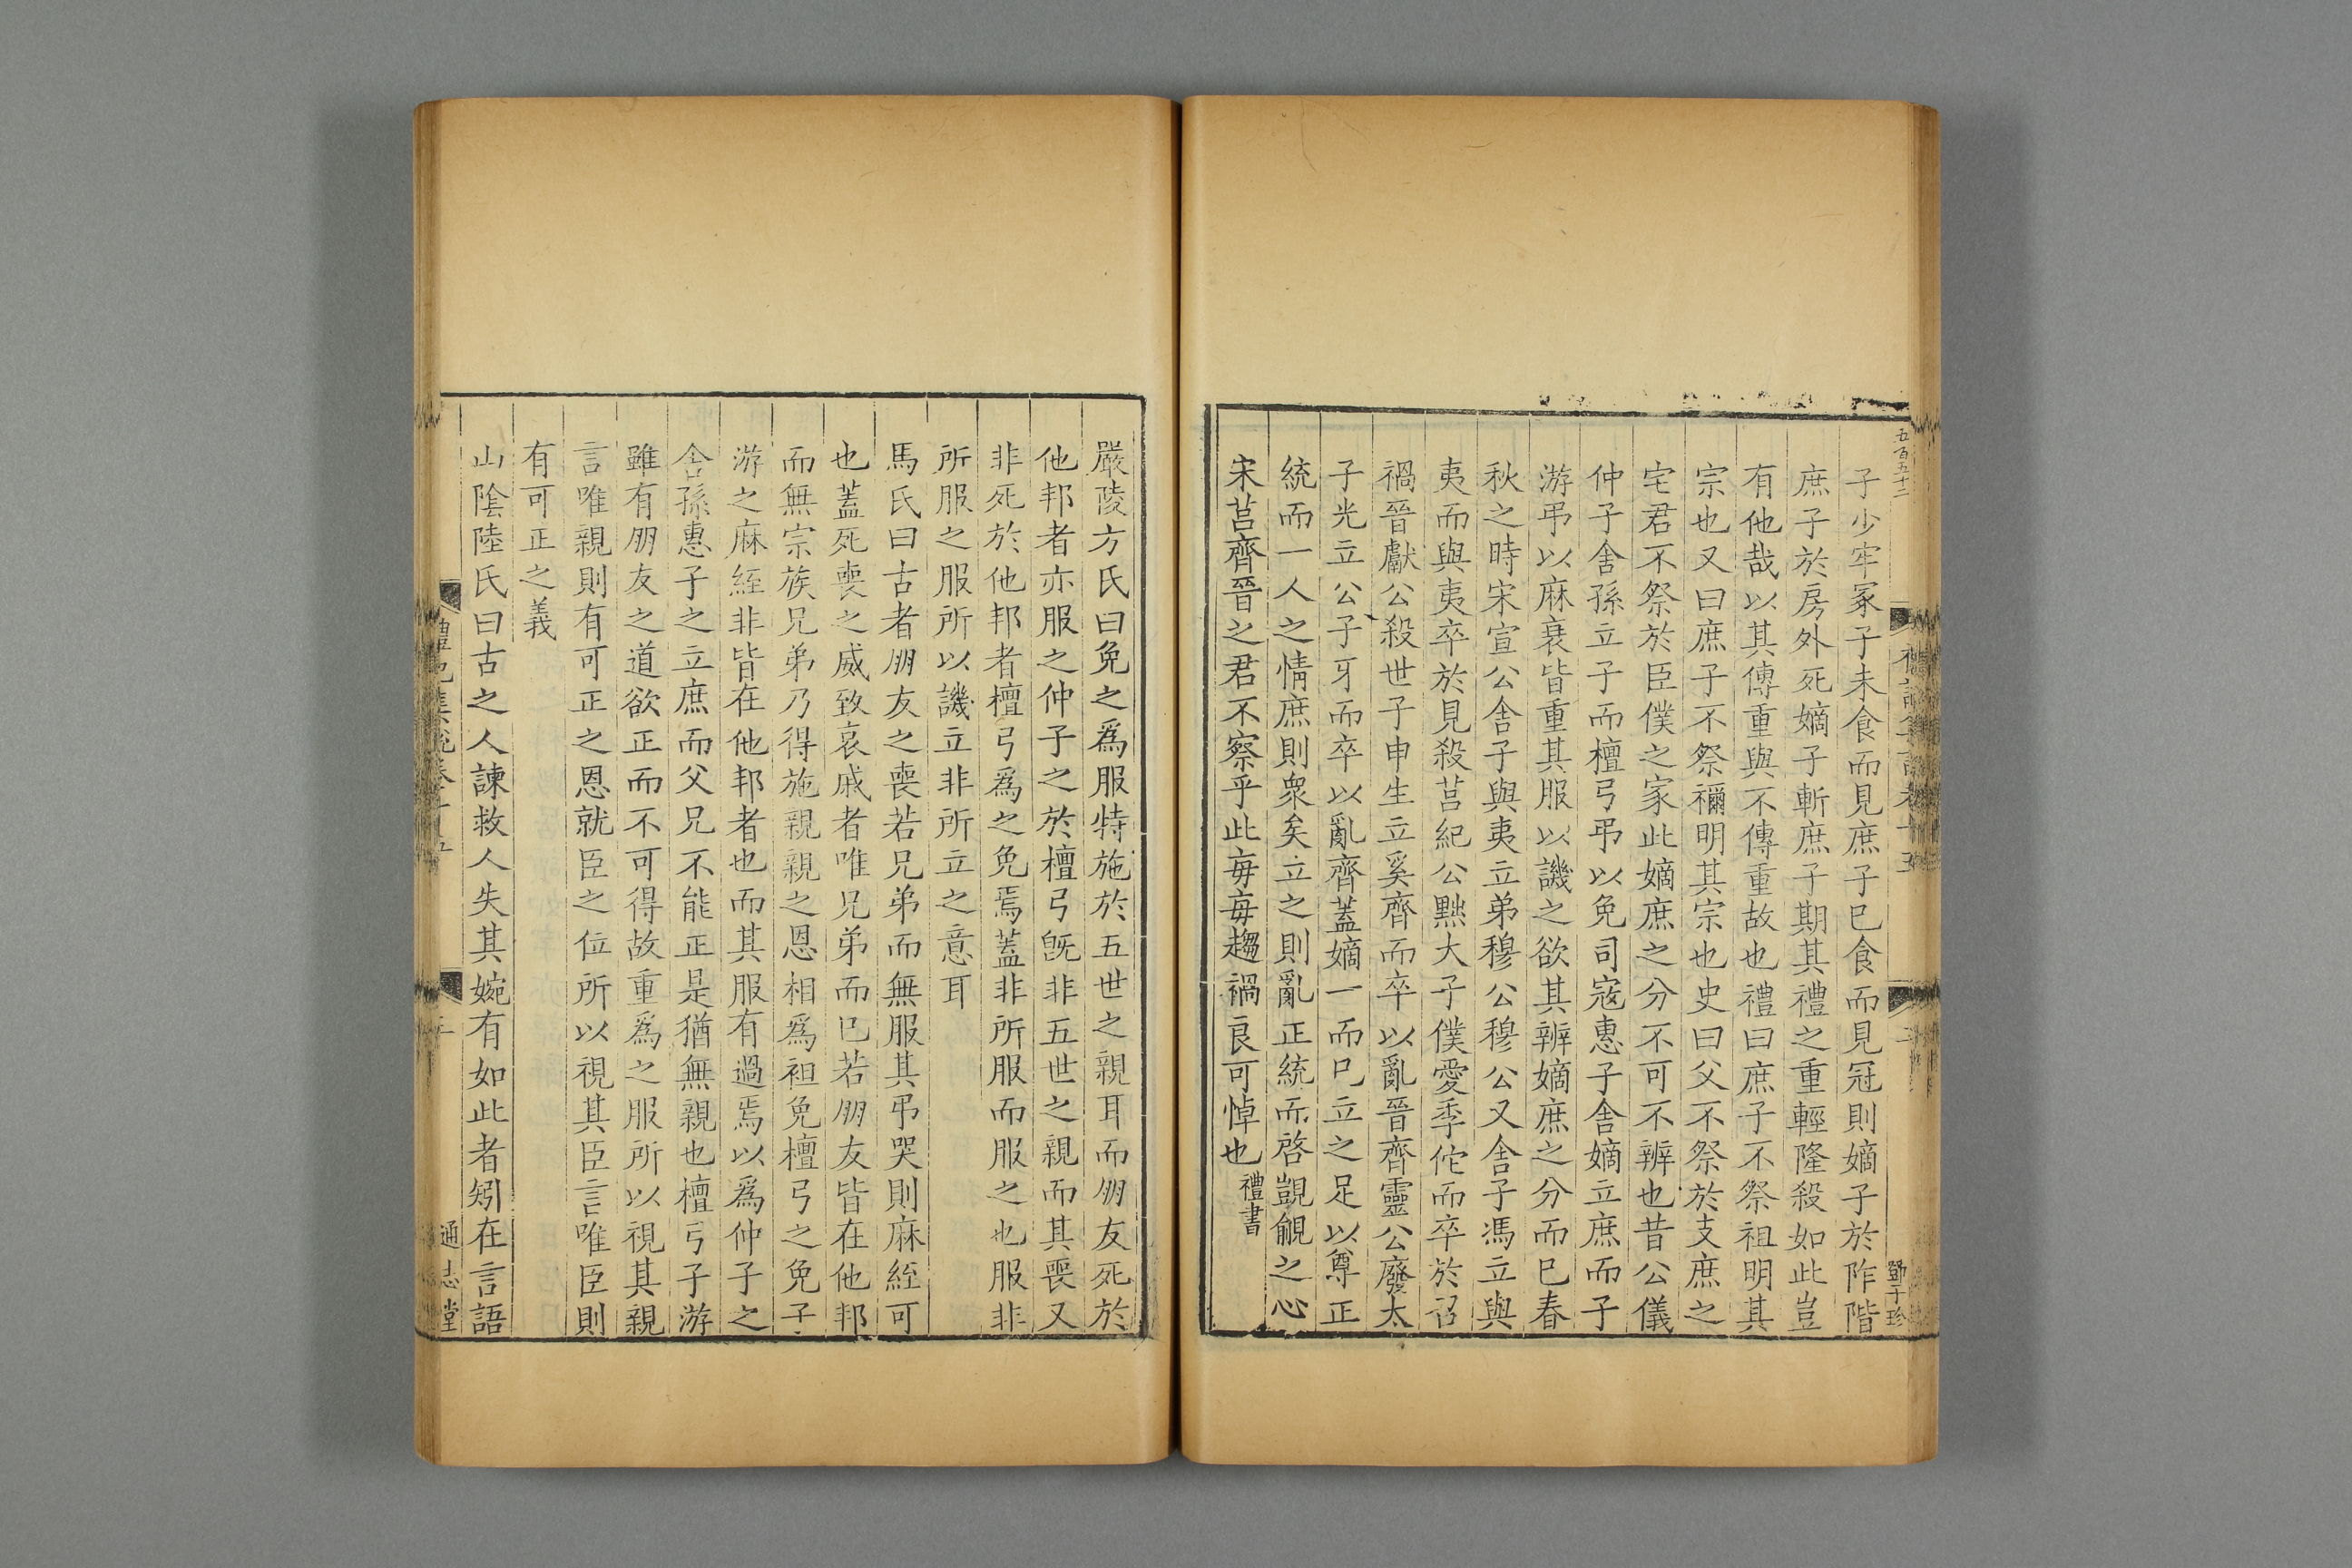 五百五十二
鄧子珍
子少牢冢子未食而見庶子已食而見冠則嫡子於阼階
庶子於房外死嫡子斬庶子期其禮之重輕隆殺如此豈
有他哉以其傳重與不傳重故也禮曰庶子不祭祖明其
宗也又曰庶子不祭禰明其宗也史曰父不祭於支庶之
宅君不祭於臣僕之家此嫡庶之分不可不辨也昔公儀
仲子舍孫立子而檀弓弔以免司寇惠子舍嫡立庶而子
游弔以麻衰皆重其服以譏之欲其辨嫡庶之分而已春
秋之時宋宣公舍子與夷立弟穆公穆公又舍子馮立與
夷而與夷卒於見殺莒紀公黜大子僕愛季佗而卒於召
禍晉獻公殺世子申生立奚齊而卒以亂晉齊靈公廢太
子光立公子牙而卒以亂齊蓋嫡一而已立之足以尊正
統而一人之情庶則衆矣立之則亂正統而啓覬覦之心
宋莒齊晉之君不察乎此毎毎趨禍良可悼也禮書
嚴陵方氏曰免之爲服特施於五世之親耳而朋友死於
他邦者亦服之仲子之於檀弓旣非五世之親而其喪又
非死於他邦者檀弓爲之免焉蓋非所服而服之也服非
所服之服所以譏立非所立之意耳
馬氏曰古者朋友之喪若兄弟而無服其弔哭則麻絰可
也蓋死喪之威致哀戚者唯兄弟而已若朋友皆在他邦
而無宗族兄弟乃得施親親之恩相爲袒免檀弓之免子
游之麻絰非皆在他邦者也而其服有過焉以爲仲子之
舍孫惠子之立庶而父兄不能正是猶無親也檀弓子游
雖有朋友之道欲正而不可得故重爲之服所以視其親
言唯親則有可正之恩就臣之位所以視其臣言唯臣則
有可正之義
山陰陸氏曰古之人諫救人失其婉有如此者矧在言語
禮記集說卷十五
通志堂